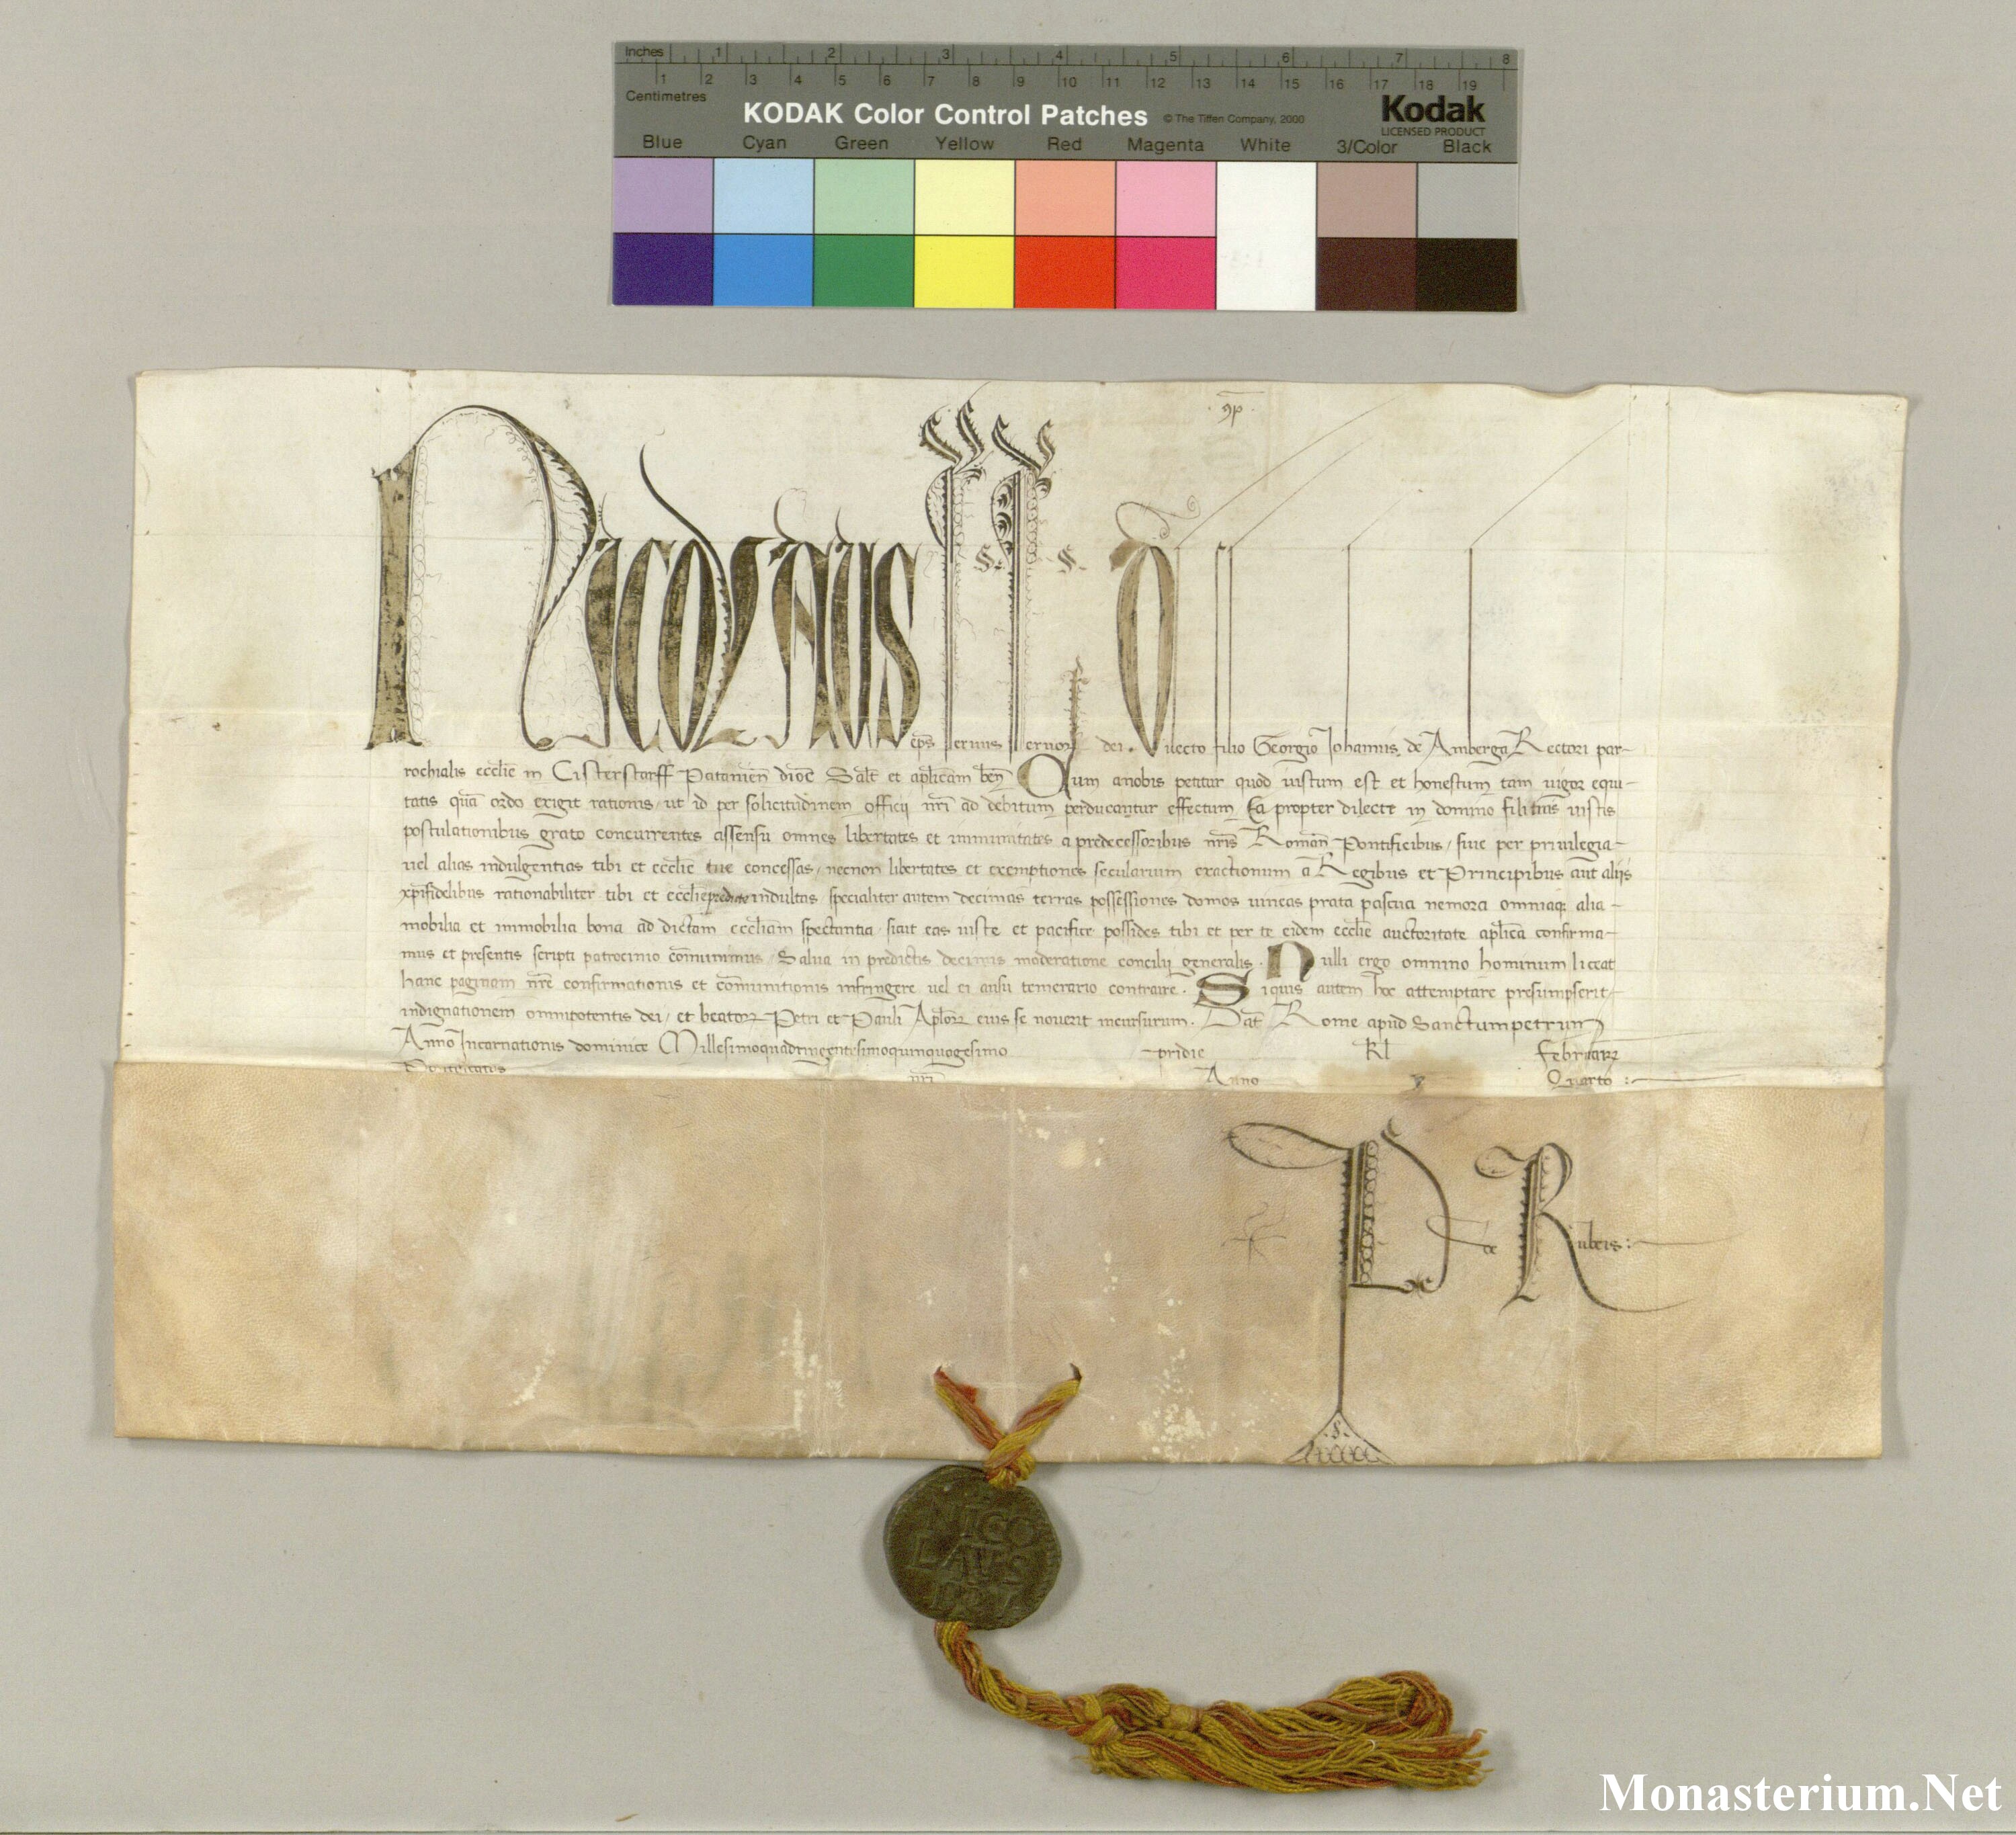 Inches 1 2 3 4 5 6 7 8
1 2 3 4 5 6 7 8 9 10 11 12 13 14 15 16 17 18 19
Centimetres
KODAK Color Control Patches © The Tiffen Company, 2000 Kodak
LICENSED PRODUCT
Blue Cyan Green Yellow Red Magenta White 3/Color Black
Nicolaus ep̄s seruus seruoꝝ dei. Dilecto filio Georgio Johannis de Amberga Rectori par-
rochialis eccl̄ie in Cisterstorff Patauien̄ dioc̄ Sal̄t et ap̄licam ben̄ Cum anobis petitur quod iustum est et honestum tam uigor equi-
tatis quā ordo exigit rationis ut id per solicitudinem officij nr̄i ad debitum perducantur effectum Ea propter dilecte in domino fili tuis iustis
postulationibus grato concurrentes assensu omnes libertates et immunitates a predecessoribus nr̄is Roman̄ Pontificibus / siue per priuilegia
uel alias indulgentias tibi et eccl̄ie tue concessas / necnon libertates et exemptiones secularium exactionum a Regibus et Principibus aut alijs
xp̄ifidelibus rationabiliter tibi et eccl̄ie predicte indultas / specialiter autem decimas terras possessiones domos uineas prata pascua nemora omniaqꝫ alia -
mobilia et immobilia bona ad dictam eccl̄iam spectantia / sicut eas iuste et pacifice possides tibi et per te eidem eccl̄ie auctoritate ap̄lica confirma-
mus et presentis scripti patrocinio com̄unimus / Salua in predictis decimis moderatione concilij generalis. Nulli ergo omnino hominum liceat
hanc paginam nr̄e confirmationis et com̄unitionis infringere uel ei ausu temerario contraire. Siquis autem hoc attemptare presumpserit
indignationem omnipotentis dei / et beatoꝝ Petri et Pauli Ap̄loꝝ eius se nouerit incursurum. Dat̄ Rome apud Sanctumpetrum
Anno Incarnationis dominice Millesimoquadringentesimoquinquagesimo pridie kl februaꝝ
Pontificatus nr̄i Anno Quarto :-
P de Rubeis :
NICO
LAUS
PP V
Monasterium.Net